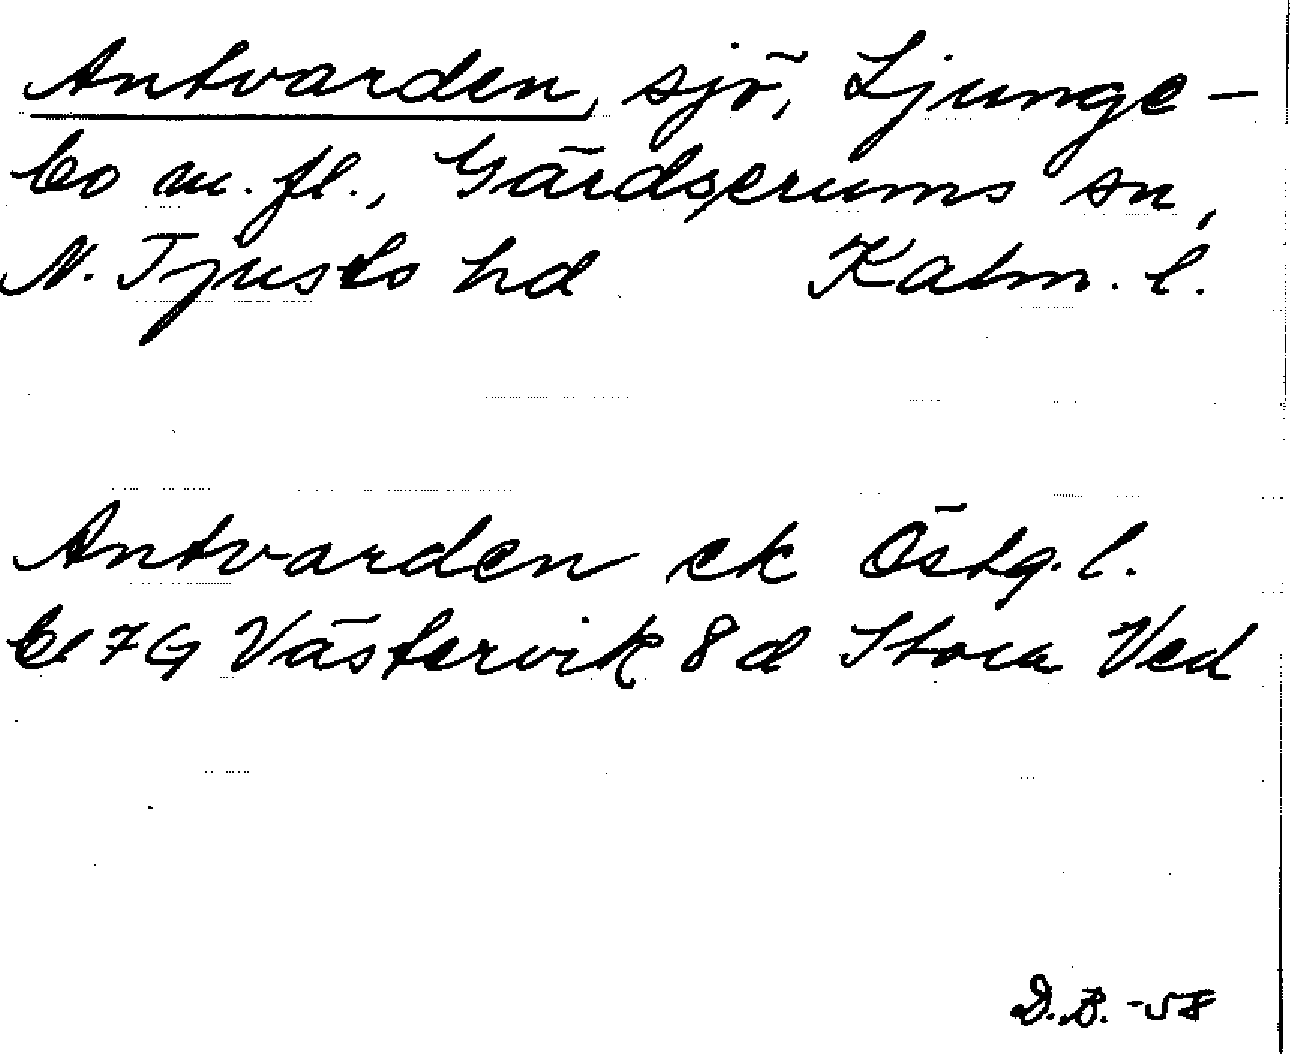 Antvarden, sjö, Ljunge-
bo m. fl., Gärdserums sn,
N. Tjusts hd Kalm. l.
Antvarden ek Östg. l.
bl 7G Västervik 8d Stora Ved
D.B. -58